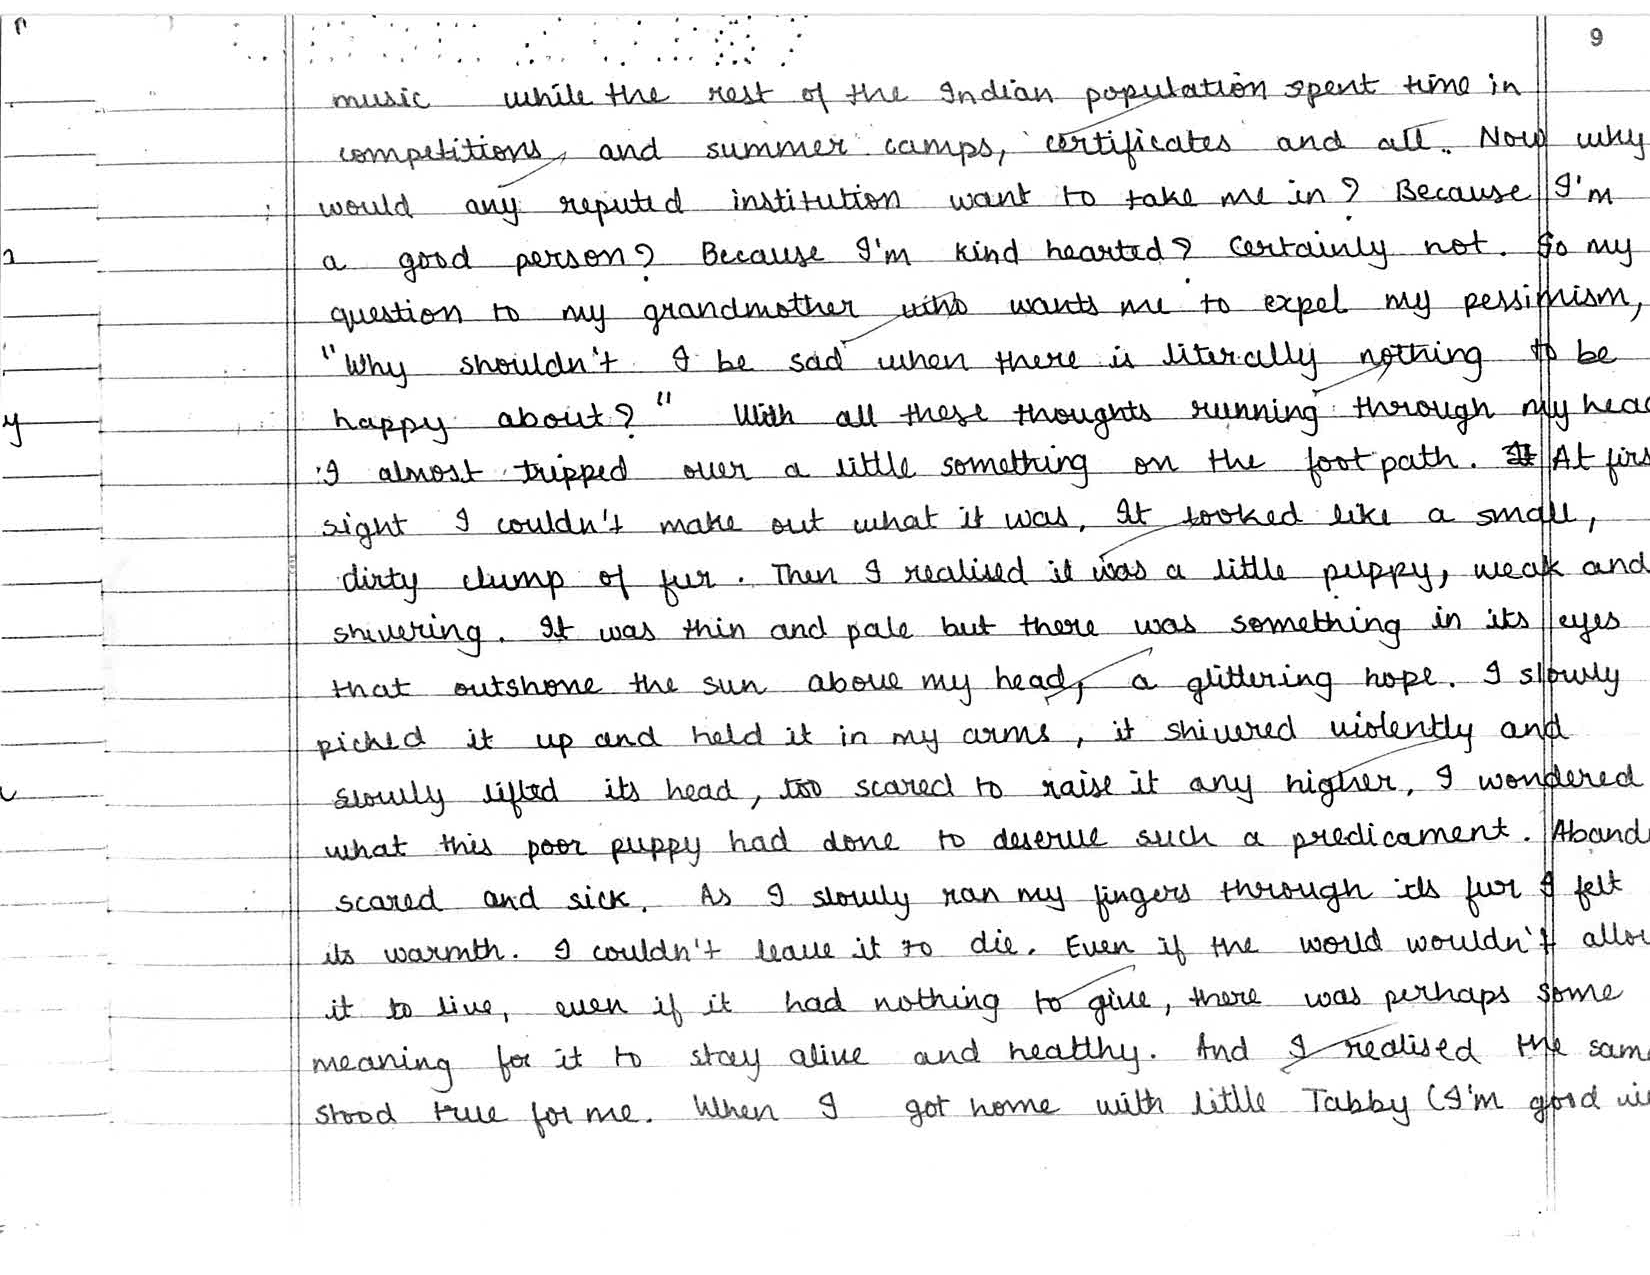 9
music while the rest of the Indian population spent time in
competitions, and summer camps, certificates and all. Now why
would any reputed institution want to take me in? Because I'm
a good person? Because I'm kind hearted? Certainly not. So my
question to my grandmother who wants me to expel my pessimism,
"Why shouldn't I be sad when there is literally nothing to be
happy about?" With all these thoughts running through my hea
I almost tripped over a little something on the foot path. At firs
sight I couldn't make out what it was. It looked like a small,
dirty clump of fur. Then I realised it was a little puppy, weak and
y
shivering. It was thin and pale but there was something in its eyes
that outshone the sun above my head, a glittering hope. I slowly
picked it up and held it in my arms, it shivered violently and
slowly lifted its head, too scared to raise it any higher. I wondered
what this poor puppy had done to deserve such a predicament. Aband
scared and sick. As I slowly ran my fingers through its fur I felt
its warmth. I couldn't leave it to die. Even if the world wouldn't allo
it to live, even if it had nothing to give, there was perhaps some
meaning for it to stay alive and healthy. And I realised the sam
stood true for me. When I got home with little Tabby (I'm good wi